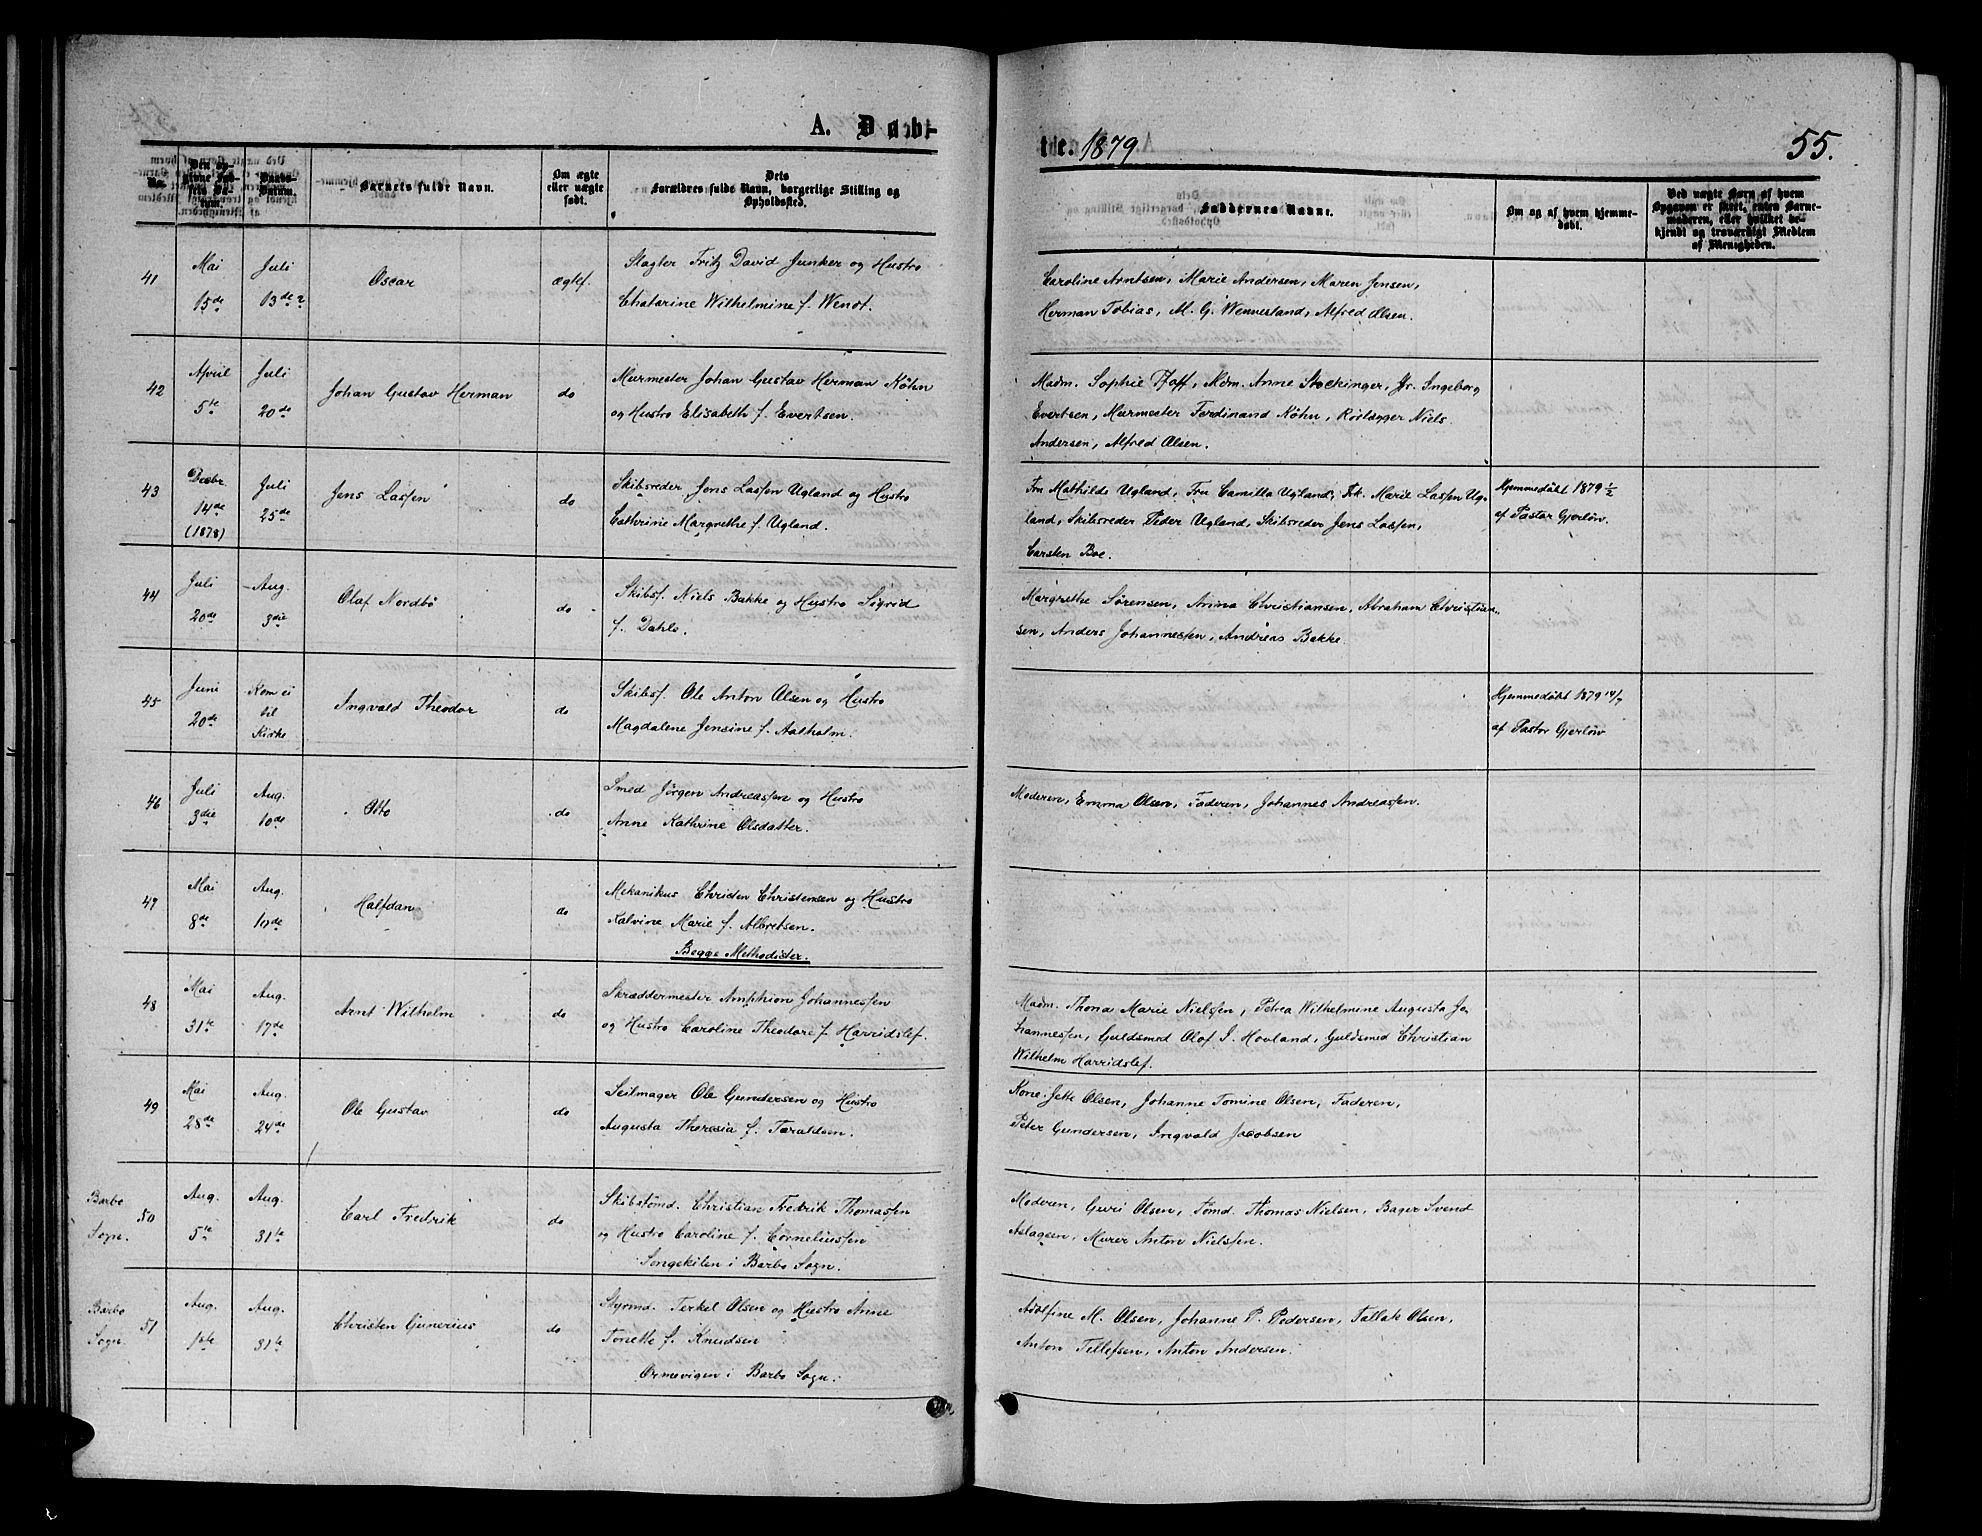 A. Døbte. 1879
55.
No.
Den opgivne Fødsels Datum.
Daabs-Datum.
Barnets fulde Navn.
Om ægte eller uægte født.
Dets Forældres fulde Navn, borgerlige Stilling og Opholdssted.
Faddernes Navne.
Om og af hvem hjemmedøbt.
Ved uægte Børn af hvem Opgaven er skeet, enten Barnemoderen, eller hvilket bekjendt og troværdigt Medlem af Menigheden.
41
Mai
15de
Juli
13de
Oscar
ægtef.
Slagter Fritz David Junker og Hustro
Chatarine Wilhelmine f. Wendt.
Caroline Arntsen, Marie Andersen, Maren Jensen,
Herman Tobias, M. G. Wennesland, Alfred Olsen.
42
April
5te
Juli
20de
Johan Gustav Herman
do
Murmester Johan Gustav Herman Köhn
og Hustro Elisabeth f. Evertsen.
Madm. Sophie Pfaff, Mdm. Anne Stockinger, Jfr. Ingeborg
Evertsen, Murmester Ferdinand Köhn, Rörlægger Niels
Andersen, Alfred Olsen.
43
Decbr
14de
(1878)
Juli
25de
Jens Lassen
do
Skibsreder Jens Lassen Ugland og Hustro
Cathrine Margrethe f. Ugland.
Fru Mathilde Ugland, Fru Camilla Ugland, Frk. Marie Lassen Ug-
land, Skibsreder Peder Ugland, Skibsreder Jens Lassen,
Carsten Boe.
Hjemmedöbt 1879 1/2
af Pastor Gjerlöw.
44
Juli
20de
Aug.
3die
Olaf Nordbö
do
Skibsf. Niels Bakke og Hustro Sigrid
f. Dahle.
Margrethe Sörensen, Anna Christiansen, Abraham Christian-
sen, Anders Johannessen, Andreas Bakke.
45
Juni
20de
Kom ei
til
Kirke
Ingvald Theodor
do
Skibsf. Ole Anton Olsen og Hustro
Magdalene Jensine f. Aalholm.
Hjemmedöbt 1879 14/7
af Pastor Gjerlöw
46
Juli
3die
Aug.
10de
Otto
do
Smed Jörgen Andreassen og Hustro
Anne Kathrine Olsdatter.
Moderen, Emma Olsen, Faderen, Johannes Andreassen.
47
Mai
8de
Aug.
10de
Halfdan
do
Mekanikus Christen Christensen og Hustro
Kalvine Marie f. Albretsen.
Begge Methodister.
48
Mai
31te
Aug.
17de
Arnt Wilhelm
do
Skræddermester Amphion Johannessen
og Hustro Caroline Theodore f. Harridslef.
Madm. Thona Marie Nielsen, Petrea Wilhelmine Augusta Jo-
hannessen, Guldsmed Olof I. Hovland, Guldsmed Christian
Wilhelm Harridslef.
49
Mai
28de
Aug.
24de
Ole Gustav
do
Seilmager Ole Gundersen og Hustro
Augusta Theresia f. Taraldsen.
Kone Jette Olsen, Johanne Tomine Olsen, Faderen,
Peter Gundersen, Ingvald Jacobsen
Barbo
Sogn.
50
Aug.
5te
Aug.
31te
Carl Fredrik
do
Skibstömd. Christian Fredrik Thomassen
og Hustro Caroline f. Corneliussen
Songekilen i Barbo Sogn.
Moderen, Guri Olsen, Tömd. Thomas Nielsen, Bager Svend
Aslagsen, Murer Anton Nielsen.
Barbo
Sogn.
51
Aug.
1ste
Aug.
31te
Christen Gunerius
do
Styrmd. Terkel Olsen og Hustro Anne
Tonette f. Knudsen
Ormevigen i Barbo Sogn.
Adolfine M. Olsen, Johanne P. Pedersen, Tallak Olsen,
Anton Tellefsen, Anton Andersen.